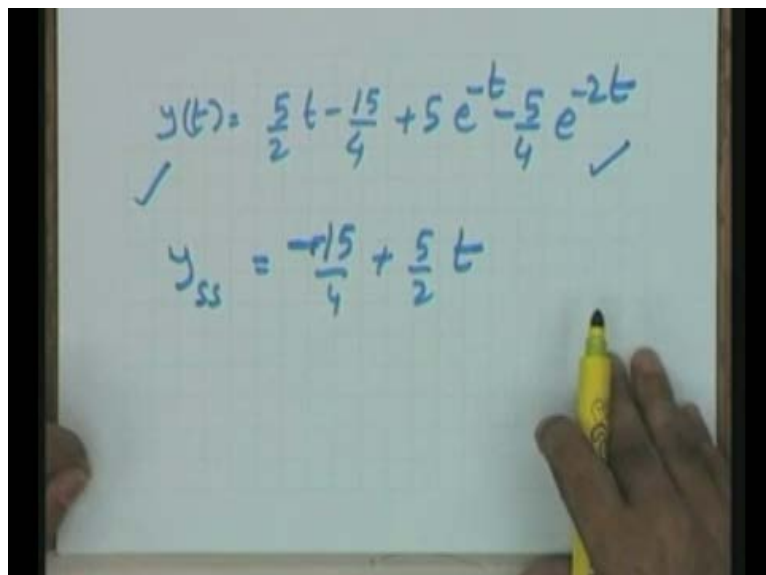 y(t) = 5/2 t - 15/4 + 5 e^{-t} - 5/4 e^{-2t}
y_{ss} = -15/4 + 5/2 t